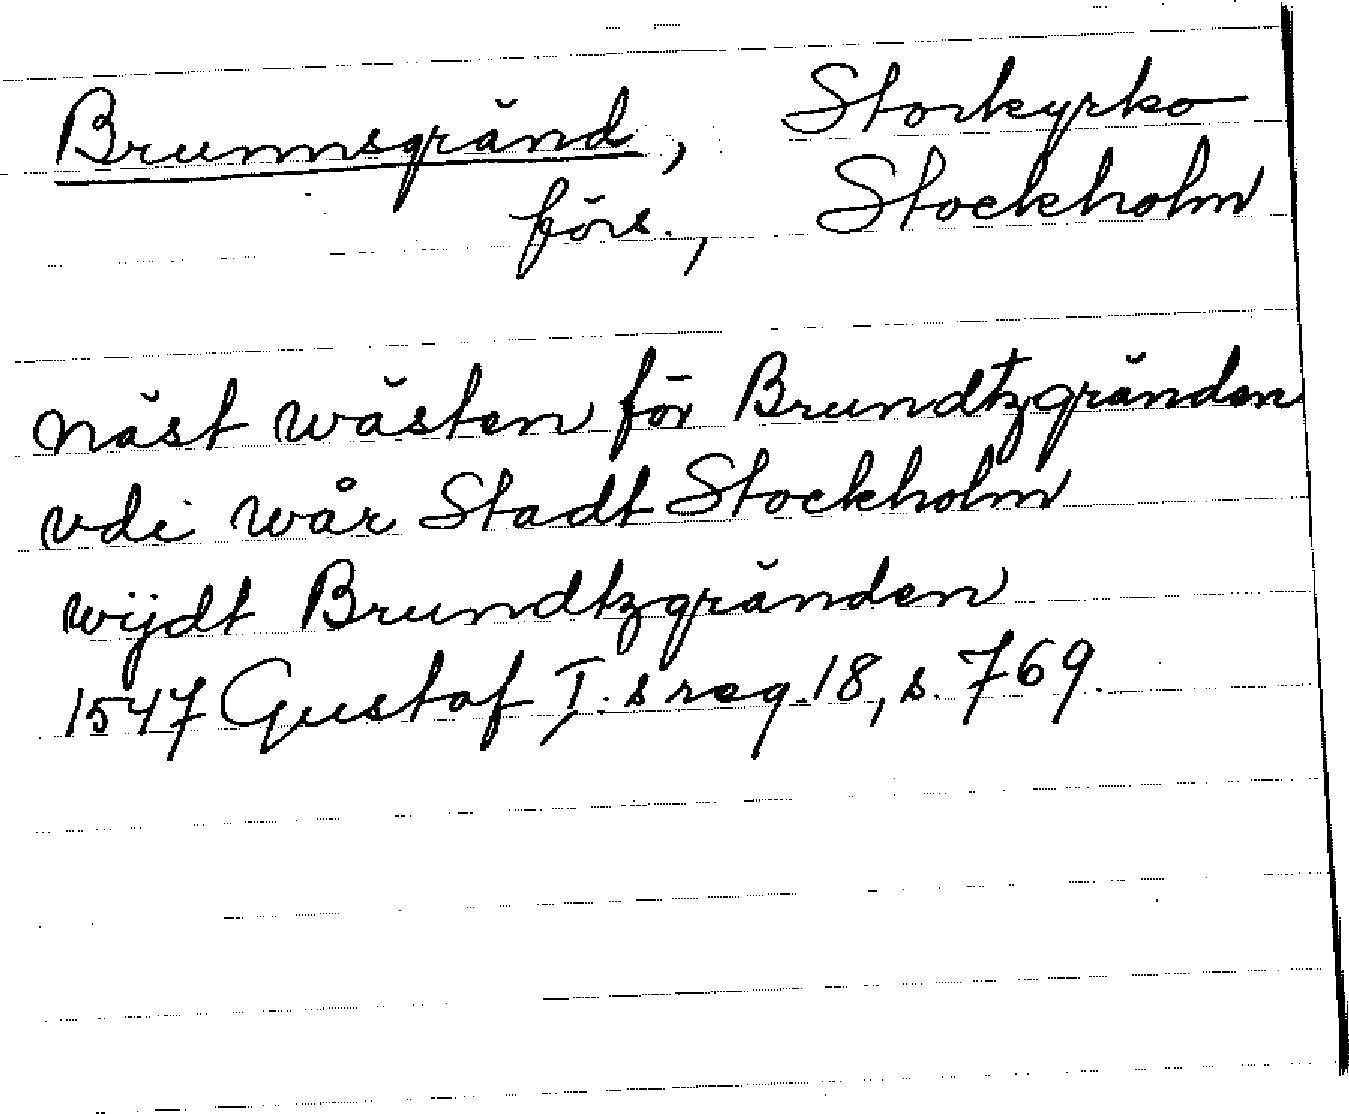 Brunnsgränd, Storkyrko
förs., Stockholm
näst wästen för Brundtzgränden
vdi wår Stadt Stockholm
wijdt Brundtzgränden
1547 Gustaf I:s reg. 18, s. 769.